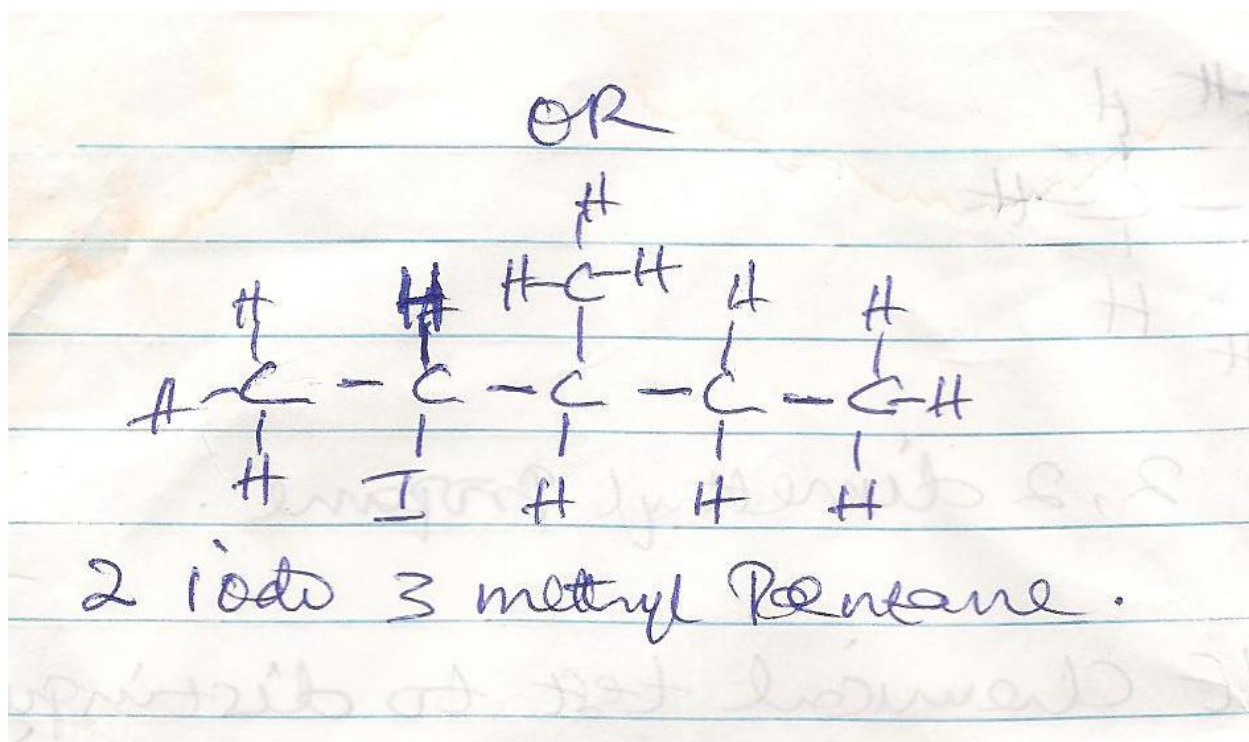 OR
H
H H H-C-H H H
H-C - C - C - C - C-H
H I H H H
2 iodo 3 methyl Pentane.